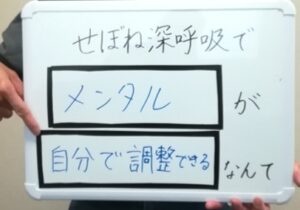 せぼね深呼吸で
メンタルが
自分で調整できるなんて